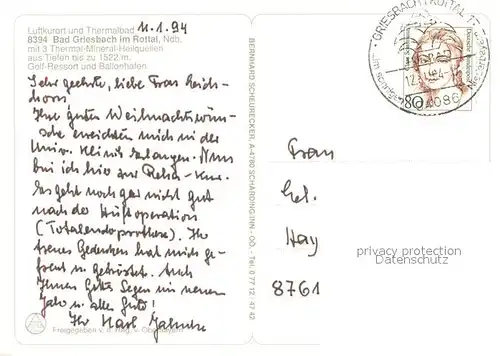 11.1.94
Luftkurort und Thermalbad
8394 Bad Griesbach im Rottal, Ndb.
mit 3 Thermal-Mineral-Heilquellen
aus Tiefen bis zu 1522/m.
Golf-Ressort und Ballonhafen
Sehr geehrte, liebe Frau Reich-
horn!
Ihre guten Weihnachtswün-
sche erreichten mich in der
Univ. Klinik Erlangen. Nun
bin ich hier zur Reha-Kur.
Es geht noch gar nicht gut
nach der Hüftoperation
(Totalendoprothese). Ihr
treues Gedenken hat mich ge-
freut u. getröstet. Auch
Ihnen Gottes Segen im neuen
Jahr u. alles Gute!
Ihr Karl
Freigegeben v. d. Reg. v. Oberbayern
BERNHARD SCHEURECKER, A-4780 SCHÄRDING/INN - OÖ. - Tel. 0 77 12, 47 42
GRIESBACH I ROTTAL
94086
80
Deutsche Bundespost
Frau
Hay
8761
privacy protection
Datenschutz